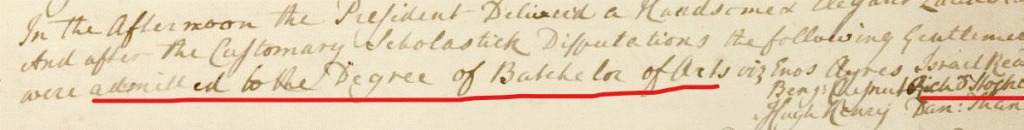 In the Afternoon the President Deliver'd a Handsome & Elegant
And after the Customary Scholastick Disputations the following Gentlemen
were admitted to the Degree of Batchelor of Arts viz Enos Ayres, Israel
Benj: Chesnut Rich'd
Hugh Henry Dan: